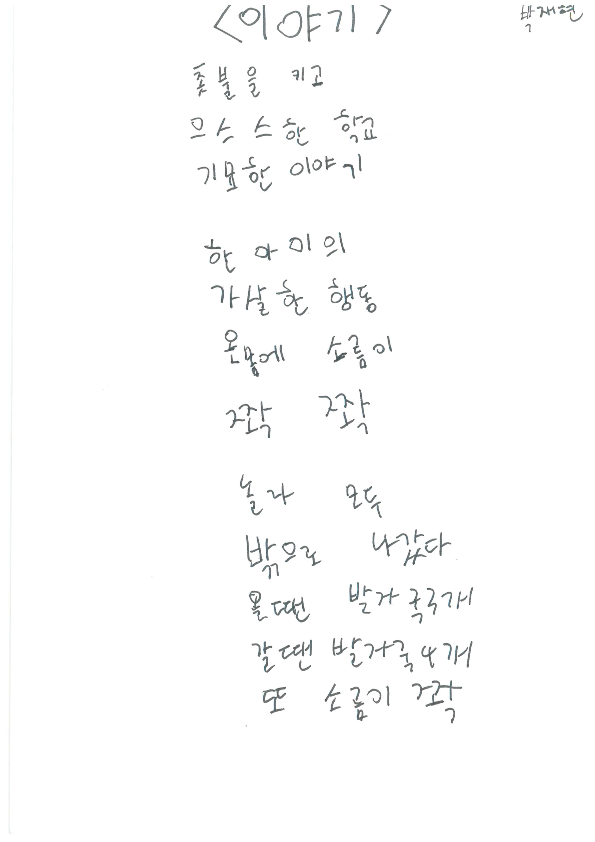 <이야기>
박재현
촛불을 키고
으스스한 학교
기묘한 이야기
한 아이의
가살한 행동
온몸에 소름이
쫙 쫙
놀라 모두
밖으로 나갔다
올땐 발자국 2개
갈땐 발자국 4개
또 소름이 쫙